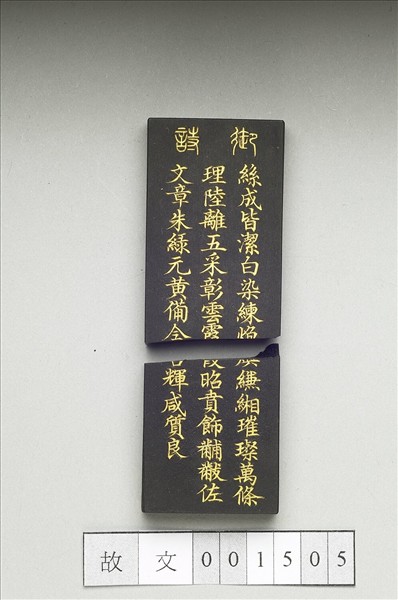 御詩
絲成皆潔白染練煥縑緗璀璨萬條
理陸離五采彰雲霞昭賁飾黼黻佐
文章朱綠元黃備含輝咸質良
故文001505